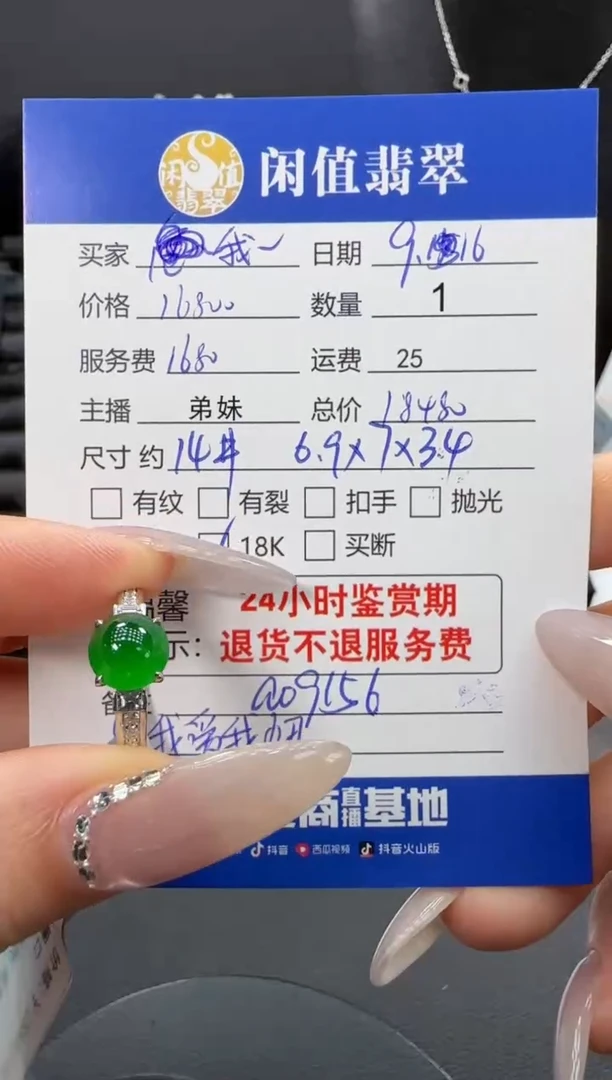 闲值翡翠
闲值翡翠
买家 我 日期 9.16
价格 16800 数量 1
服务费 1680 运费 25
主播 弟妹 总价 18480
尺寸 约 14# 6.9×7×3.4
有纹 有裂 扣手 抛光
18K 买断
馨 24小时鉴赏期
示：退货不退服务费
a09156
我爱我
商直播基地
抖音 西瓜视频 抖音火山版